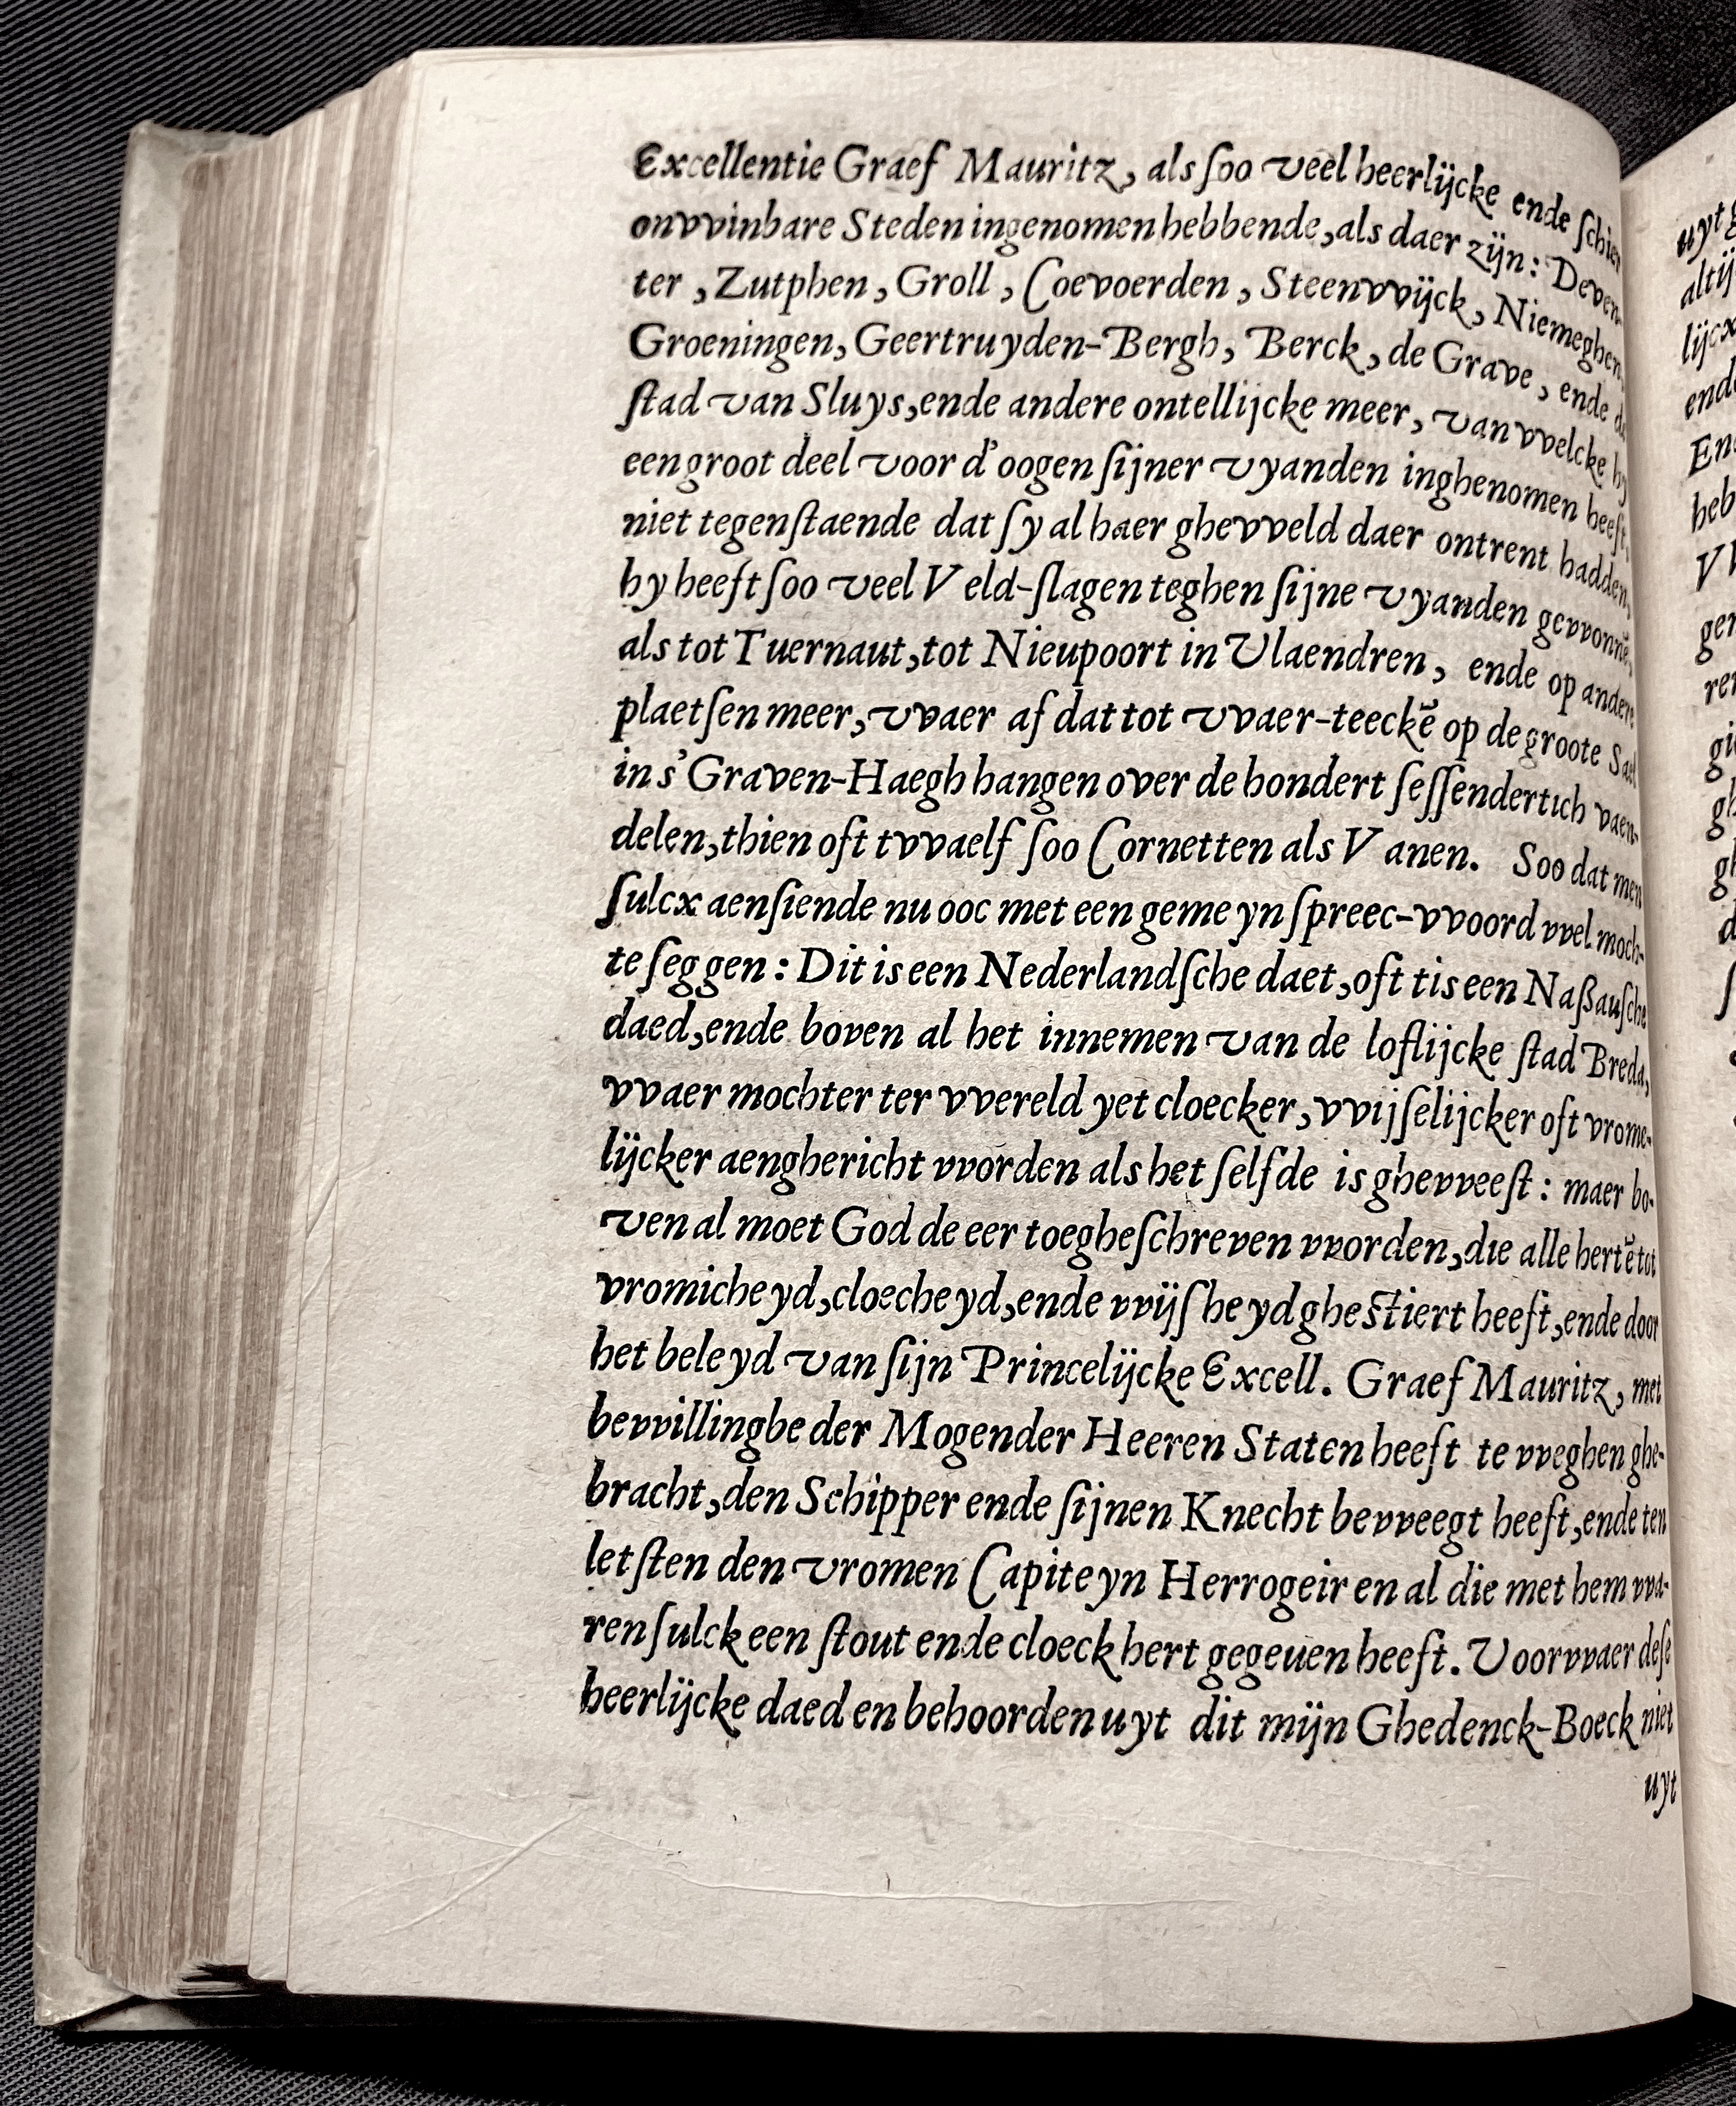 Excellentie Graef Mauritz, als ſoo veel heerlijcke ende ſchier
onvvinbare Steden ingenomen hebbende, als daer zijn: Deven-
ter, Zutphen, Groll, Coevoerden, Steenvvijck, Niemeghen,
Groeningen, Geertruyden-Bergh, Berck, de Grave, ende de
ſtad van Sluys, ende andere ontellijcke meer, van vvelcke hy
een groot deel voor d'oogen ſijner vyanden inghenomen heeft,
niet tegenſtaende dat ſy al haer ghevveld daer ontrent hadden,
hy heeft ſoo veel Veld-ſlagen teghen ſijne vyanden gevvonnē,
als tot Tuernaut, tot Nieupoort in Vlaendren, ende op andere
plaetſen meer, vvaer af dat tot vvaer-teeckē op de groote Sael
in s'Graven-Haegh hangen over de hondert ſeſſendertich vaen-
delen, thien oft tvvaelf ſoo Cornetten als Vanen. Soo dat men
ſulcx aenſiende nu ooc met een gemeyn ſpreec-vvoord vvel moch-
te ſeggen: Dit is een Nederlandſche daet, oft tis een Naßauſche
daed, ende boven al het innemen van de loflijcke ſtad Breda,
vvaer mochter ter vvereld yet cloecker, vvijſelijcker oft vrome-
lijcker aenghericht vvorden als het ſelfde is ghevveeſt: maer bo-
ven al moet God de eer toegheſchreven vvorden, die alle hertē tot
vromicheyd, cloecheyd, ende vvijſheyd gheſtiert heeft, ende door
het beleyd van ſijn Princelijcke Excell. Graef Mauritz, met
bevvillinghe der Mogender Heeren Staten heeft te vveghen ghe-
bracht, den Schipper ende ſijnen Knecht bevveegt heeft, ende ten
letſten den vromen Capiteyn Herrogeir en al die met hem vva-
ren ſulck een ſtout ende cloeck hert gegeuen heeft. Voorvvaer deſe
heerlijcke daed en behoorden uyt dit mijn Ghedenck-Boeck niet
uyt
uyt
altij
lijcx
ende
heb